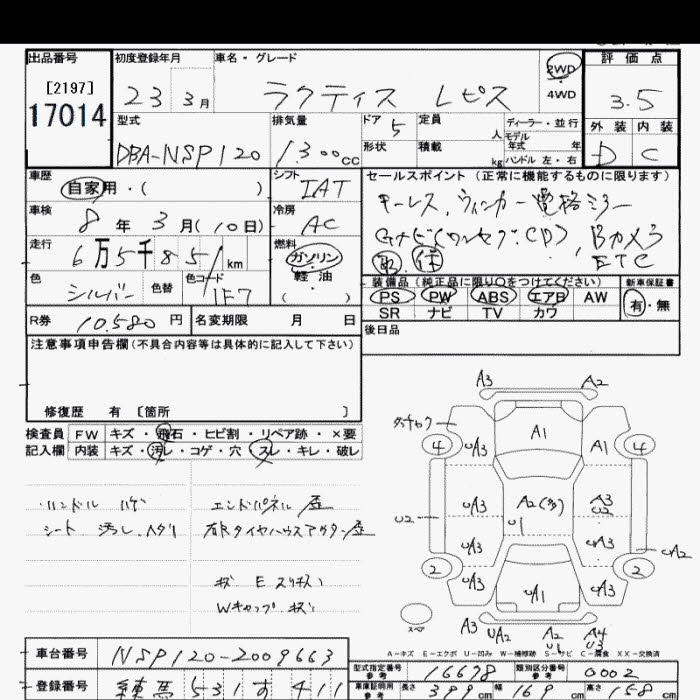 出品番号 初度登録年月 車名・グレード 2WD 評価点
[2197] 23 3月 ラクティス レピス 4WD 3.5
17014 型式 排気量 ドア 5 定員 人 ディーラー・並行 外装 内装
DBA-NSP120 1300cc 形状 積載 kg モデル年式 年式 ハンドル 左・右 D C
車歴 シフト セールスポイント (正常に機能するものに限ります)
自家用・( ) IAT キーレス、ウィンカー電格ミラー
車検 8年 3月(10日) 冷房 AC Gナビ(ワンセグ.CD)、Bカメラ
走行 6万5千851km 燃料 ガソリン 軽油 ( ) 取 保 ETC
色 シルバー 色替 色コード 1F7 装備品 (純正品に限り○をつけてください) 新車保証書
PS PW ABS エアB AW 有・無
SR ナビ TV カワ
R券 10.580円 名変期限 月 日 後日品
注意事項申告欄 (不具合内容等は具体的に記入して下さい)
修復歴 有 〔箇所 〕
検査員 FW キズ・飛石・ヒビ割・リペア跡・×要
記入欄 内装 キズ・汚レ・コゲ・穴・スレ・キレ・破レ
ハンドル ハゲ エンドパネル歪
シート 汚レ
Wキャップ キズ
A3 A2
A1
4 UA3 A1 4
UA3 A2(多) A3
U2 U1 U2
UA3 UA3 UA2
2 UA3 UA1 UA3 2
スペア
A3 UA2 A2 A4
U1 U3
A-キズ E-エクボ U-凹み W-補修跡 S-サビ C-腐食 XX-交換済
車台番号 NSP120-2009663 型式指定番号 参考 16678 類別区分番号 参考 0002
登録番号 練馬 531 す 411 車庫証明用 参考 長さ 399cm 幅 169cm 高さ 158cm